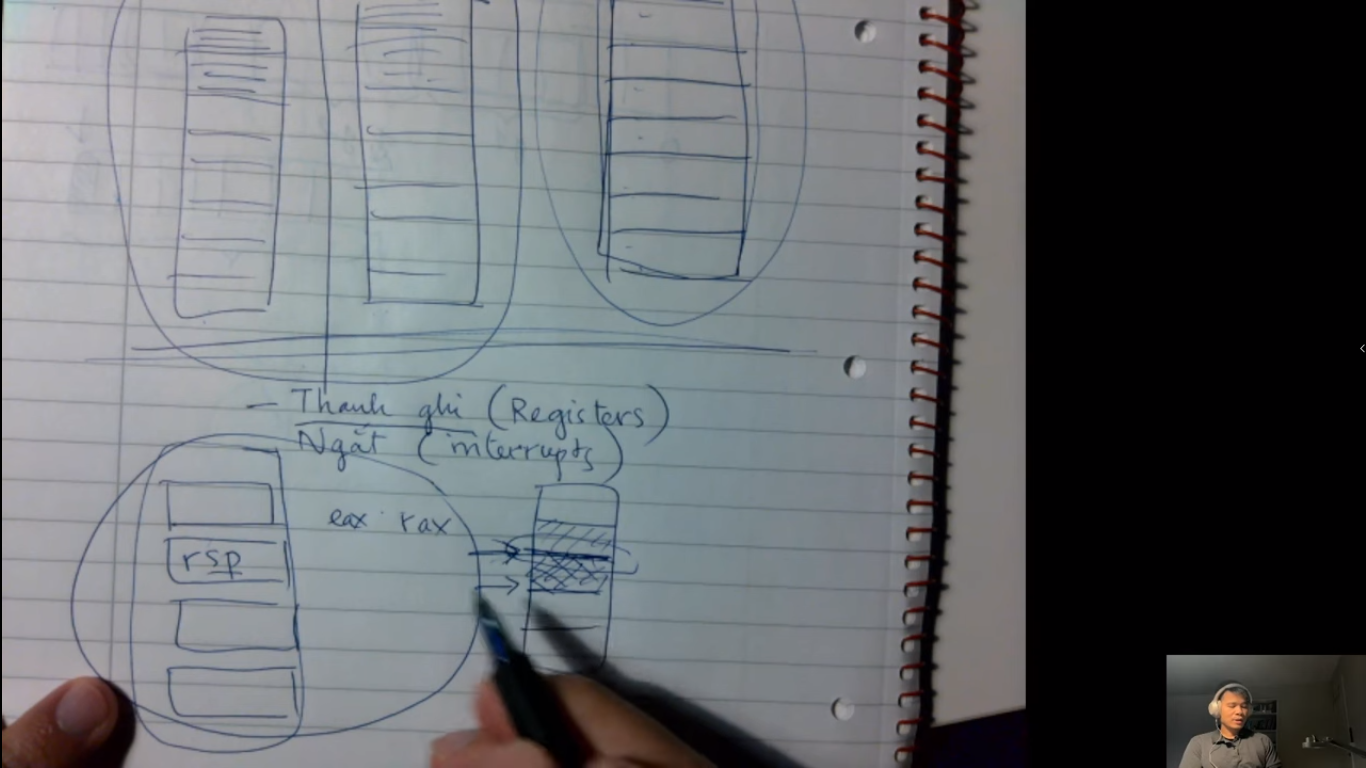 – Thanh ghi (Registers)
Ngắt (interrupts)
eax rax
rsp